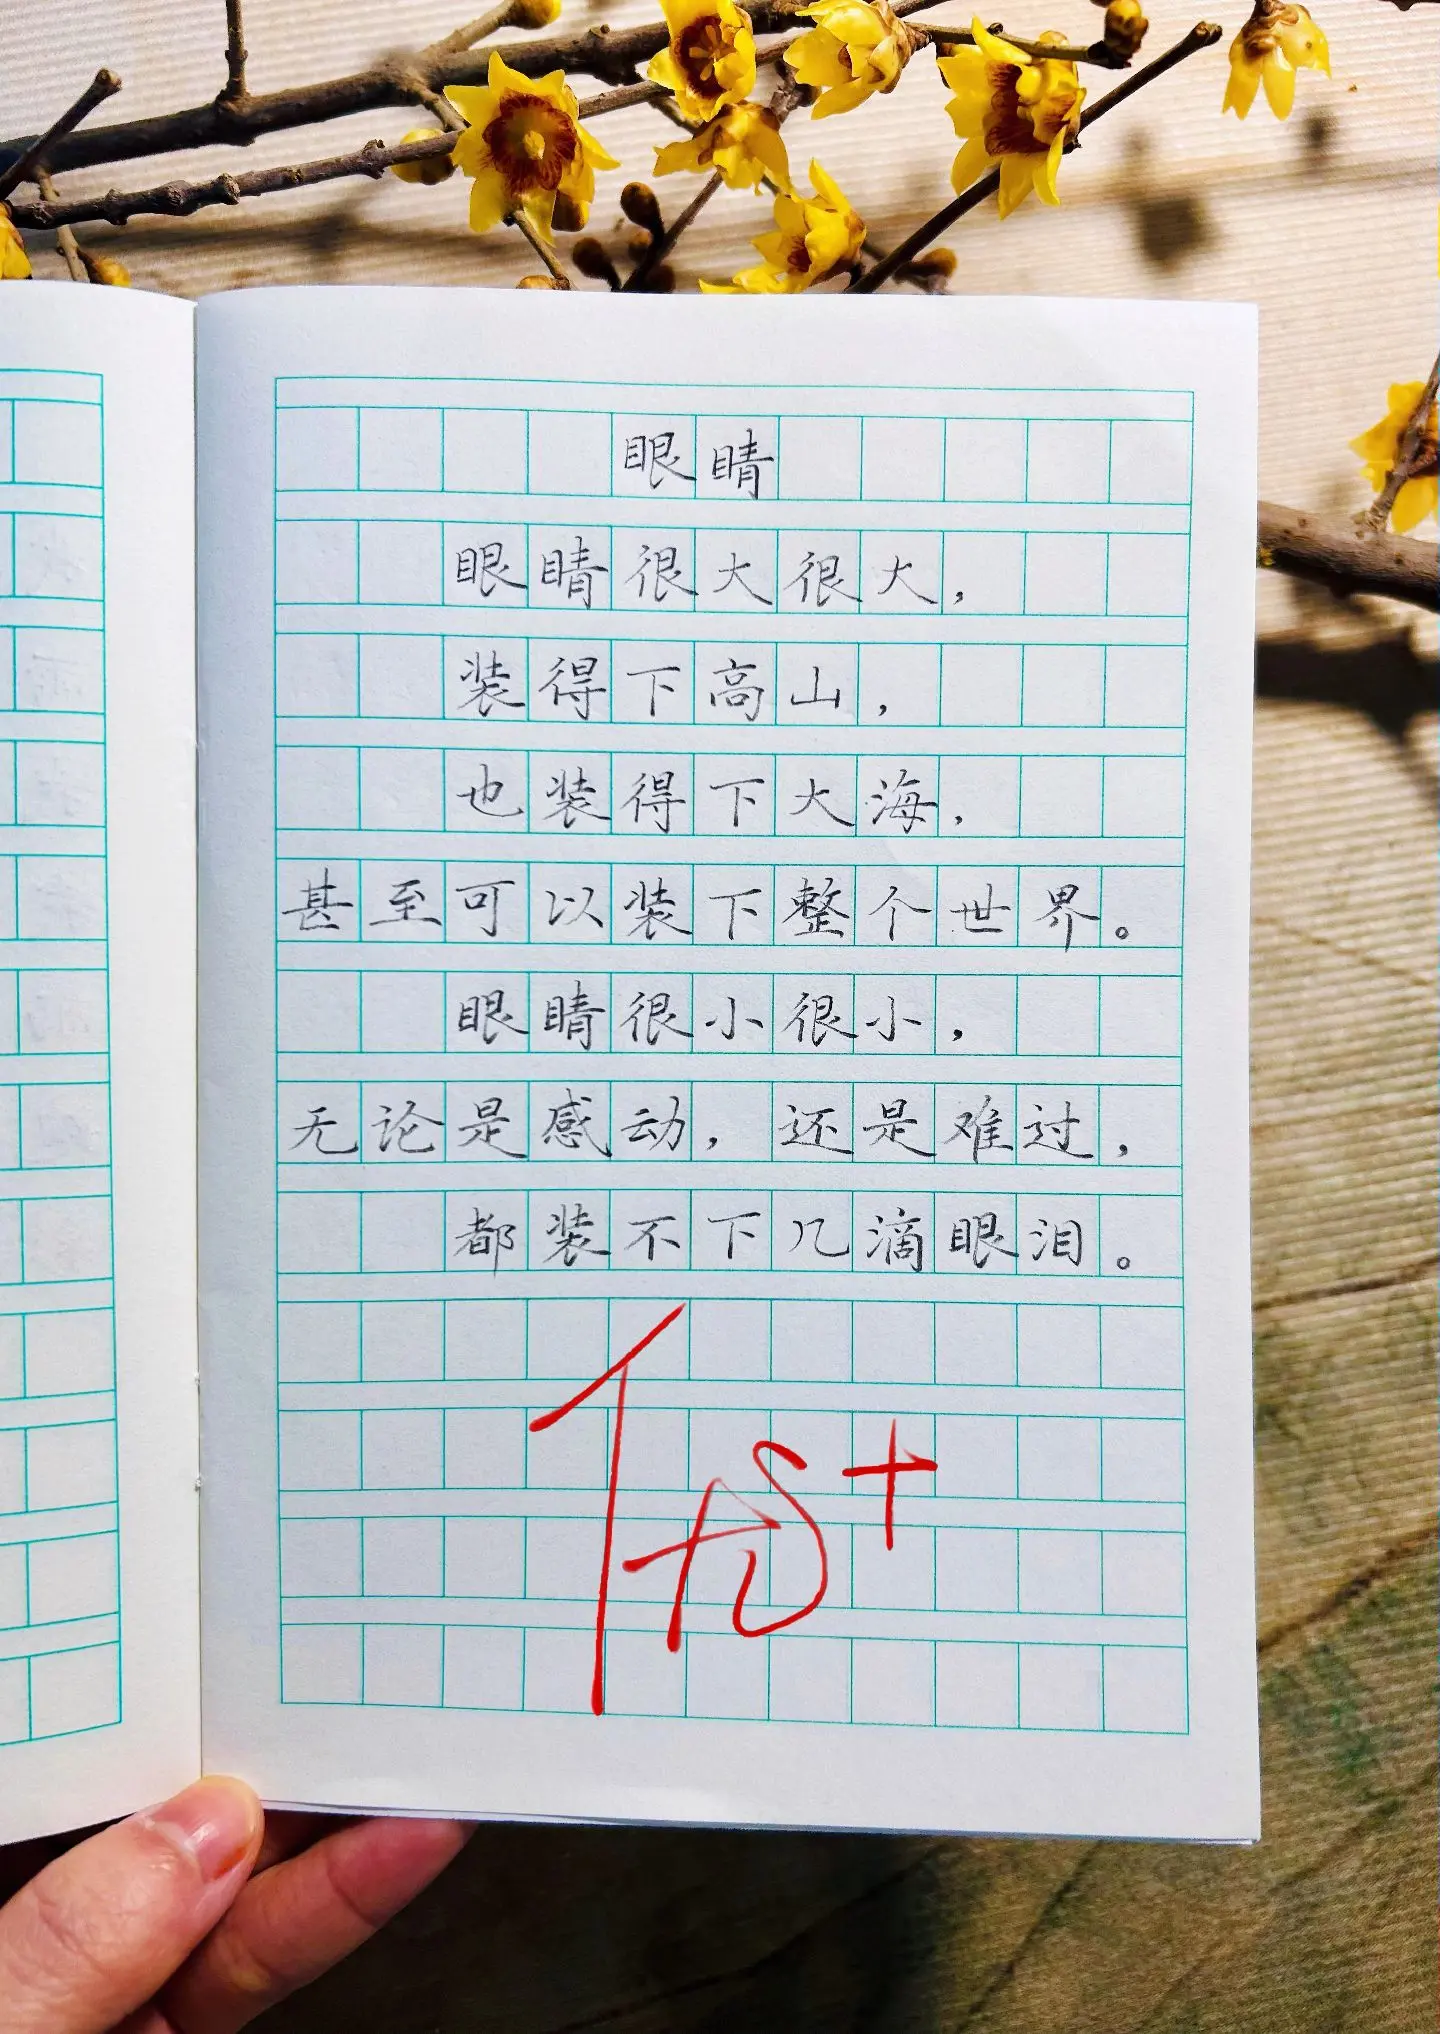 眼睛
眼睛很大很大，
装得下高山，
也装得下大海，
甚至可以装下整个世界。
眼睛很小很小，
无论是感动，还是难过，
都装不下几滴眼泪。
优+